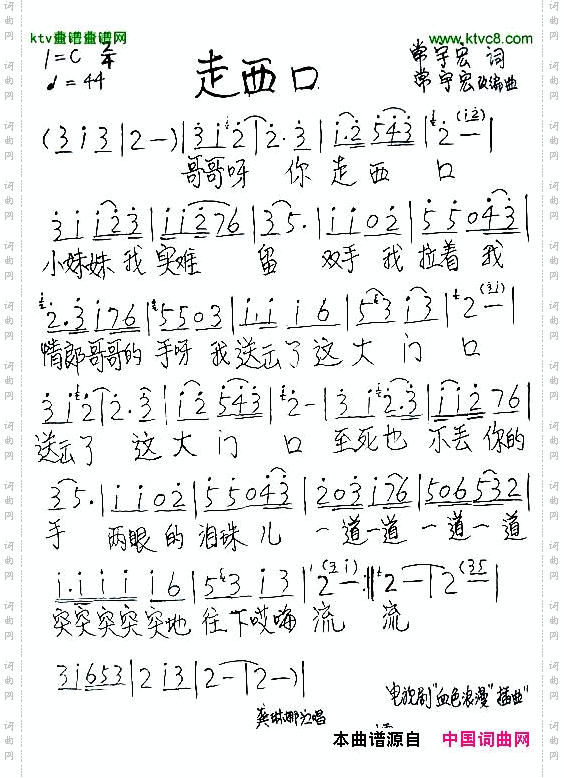 ktv歌谱歌谱网 www.ktvc8.com
1=C 2/4
♩=44
走西口
常宇宏 词
常宇宏改编曲
(3 i 3 | 2 — ) | 3 i 2 | 2 · 3 | i · 2 5 4 3 | 2 — |
哥哥呀 你 走 西 口
3 i i 2 3 | i i 2 7 6 | 3 5 · | i i 0 2 | 5 5 0 4 3 |
小妹妹 我 实难 留 双手 我 拉着 我
2 · 3 i 7 6 | 5 5 0 3 | i · i i 6 | 5 3 i 3 | 2 — |
情郎哥哥的 手呀 我 送云了 这 大 门 口
3 i 2 | 2 · 3 | i 2 5 4 3 | 2 — | 3 i 2 · 3 | i i 2 7 6 |
送云了 这 大 门 口 至死也 不丢 你的
3 5 · | i i 0 2 | 5 5 0 4 3 | 2 0 3 i 7 6 | 5 0 6 5 3 2 |
手 两眼 的 泪珠 儿 一道一道 一道一道
i · i i i i 6 | 5 3 i 3 | 2 — :|| 2 — | 2 (3 5 |
突突突突突地 往下哎嗨 流 流
3 i 6 5 3 | 2 i 3 | 2 — | 2 — ) |
电视剧"血色浪漫"插曲"
龚琳娜演唱
本曲谱源自 中国词曲网
词曲网